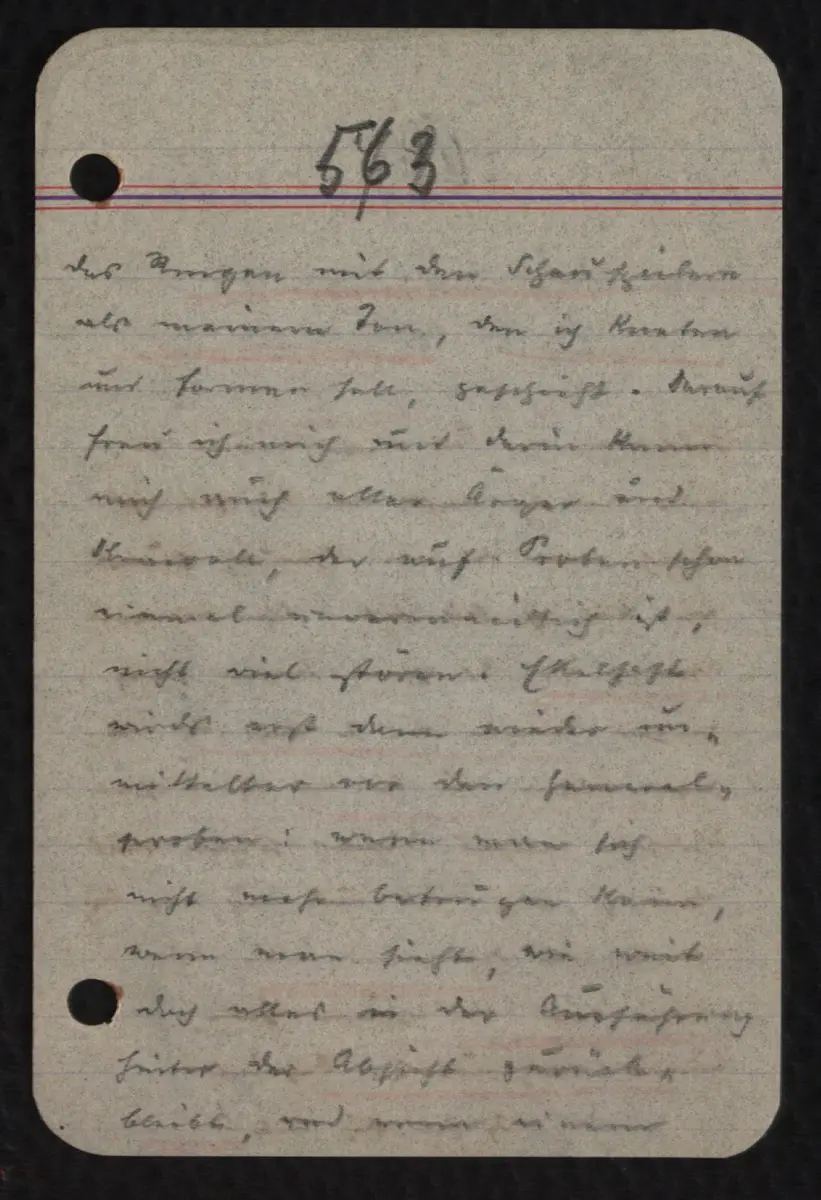 563
das Ringen mit den Schauspielern
als meinem Ton, den ich kneten
und formen soll, geschieht. Darauf
freu ich mich und darin kann
mich auch aller Ärger und
der auf Proben schon
einmal unvermeidlich ist,
nicht viel stören. Ekelhaft
wirds erst dann wieder un-
mittelbar vor den General-
proben: wenn man sich
nicht mehr betrügen kann,
wenn man sieht, wie weit
doch alles in der Ausführung
hinter der Absicht zurück-
bleibt, und wenn einem